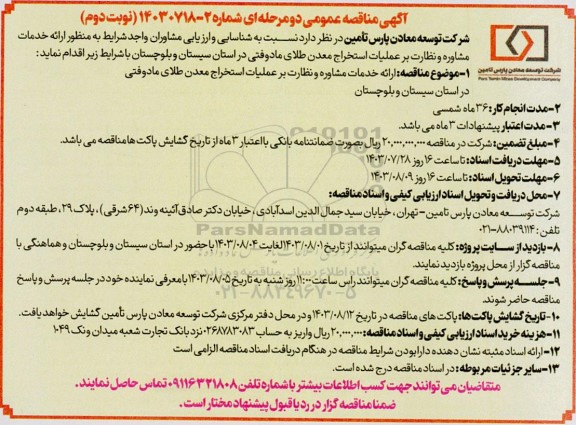 آگهی مناقصه عمومی دو مرحله ای شماره ۲-۱۴۰۳۰۷۱۸ (نوبت دوم)
شرکت توسعه معادن پارس تأمین در نظر دارد نسبت به شناسایی و ارزیابی مشاوران واجد شرایط به منظور ارائه خدمات
مشاوره و نظارت بر عملیات استخراج معدن طلای مادوفتی در استان سیستان و بلوچستان با شرایط زیر اقدام نماید:
شرکت توسعه معادن پارس تامین
Pars Tamin Mines Development Company
۱-موضوع مناقصه: ارائه خدمات مشاوره و نظارت بر عملیات استخراج معدن طلای مادوفتی
در استان سیستان و بلوچستان
۲-مدت انجام کار: ۳۶ ماه شمسی
۳-مدت اعتبار پیشنهادات ۳ ماه می باشد.
۴-مبلغ تضمین: شرکت در مناقصه ۲۰,۰۰۰,۰۰۰,۰۰۰ ریال بصورت ضمانتنامه بانکی با اعتبار ۳ ماه از تاریخ گشایش پاکت ها مناقصه می باشد.
۵-مهلت دریافت اسناد: تا ساعت ۱۶ روز ۱۴۰۳/۰۷/۲۸
۶-مهلت تحویل اسناد: تا ساعت ۱۶ روز ۱۴۰۳/۰۸/۰۹
۷-محل دریافت و تحویل اسناد ارزیابی کیفی و اسناد مناقصه:
شرکت توسعه معادن پارس تامین - تهران، خیابان سید جمال الدین اسدآبادی، خیابان دکتر صادق آئینه وند (۶۴ شرقی)، پلاک ۲۹، طبقه دوم
تلفن: ۸۸۰۳۹۱۱۴-۰۲۱
ParsNamadData
۸-بازدید از سایت پروژه: کلیه مناقصه گران میتوانند از تاریخ ۱۴۰۳/۰۸/۰۱ لغایت ۱۴۰۳/۰۸/۰۴ با حضور در استان سیستان و بلوچستان و هماهنگی با
مناقصه گزار از محل پروژه بازدید نمایند.
پایگاه اطلاع رسانی مناقصه و مزایده
۰۲۱-۸۸۳۴۹۶۷۰-۵
۹-جلسه پرسش و پاسخ: کلیه مناقصه گران میتوانند راس ساعت ۱۱:۰۰ روز شنبه به تاریخ ۱۴۰۳/۰۸/۰۵ با معرفی نماینده خود در جلسه پرسش و پاسخ
مناقصه حاضر شوند.
۱۰-تاریخ گشایش پاکت ها: پاکت های مناقصه در تاریخ ۱۴۰۳/۰۸/۱۲ و در محل دفتر مرکزی شرکت توسعه معادن پارس تأمین گشایش خواهد یافت.
۱۱-هزینه خرید اسناد ارزیابی کیفی و اسناد مناقصه: ۲۰,۰۰۰,۰۰۰ ریال واریز به حساب ۰۲۶۸۷۸۳۰۸۳ نزد بانک تجارت شعبه میدان ونک ۱۰۴۹
۱۲-ارائه اسناد مثبته نشان دهنده دارا بودن شرایط مناقصه در هنگام دریافت اسناد مناقصه الزامی است
۱۳-سایر جزئیات مربوطه: در اسناد مناقصه درج شده است.
متقاضیان می توانند جهت کسب اطلاعات بیشتر با شماره تلفن ۰۹۱۱۶۳۲۱۸۰۸ تماس حاصل نمایند.
ضمنا مناقصه گزار در رد یا قبول پیشنهاد مختار است.